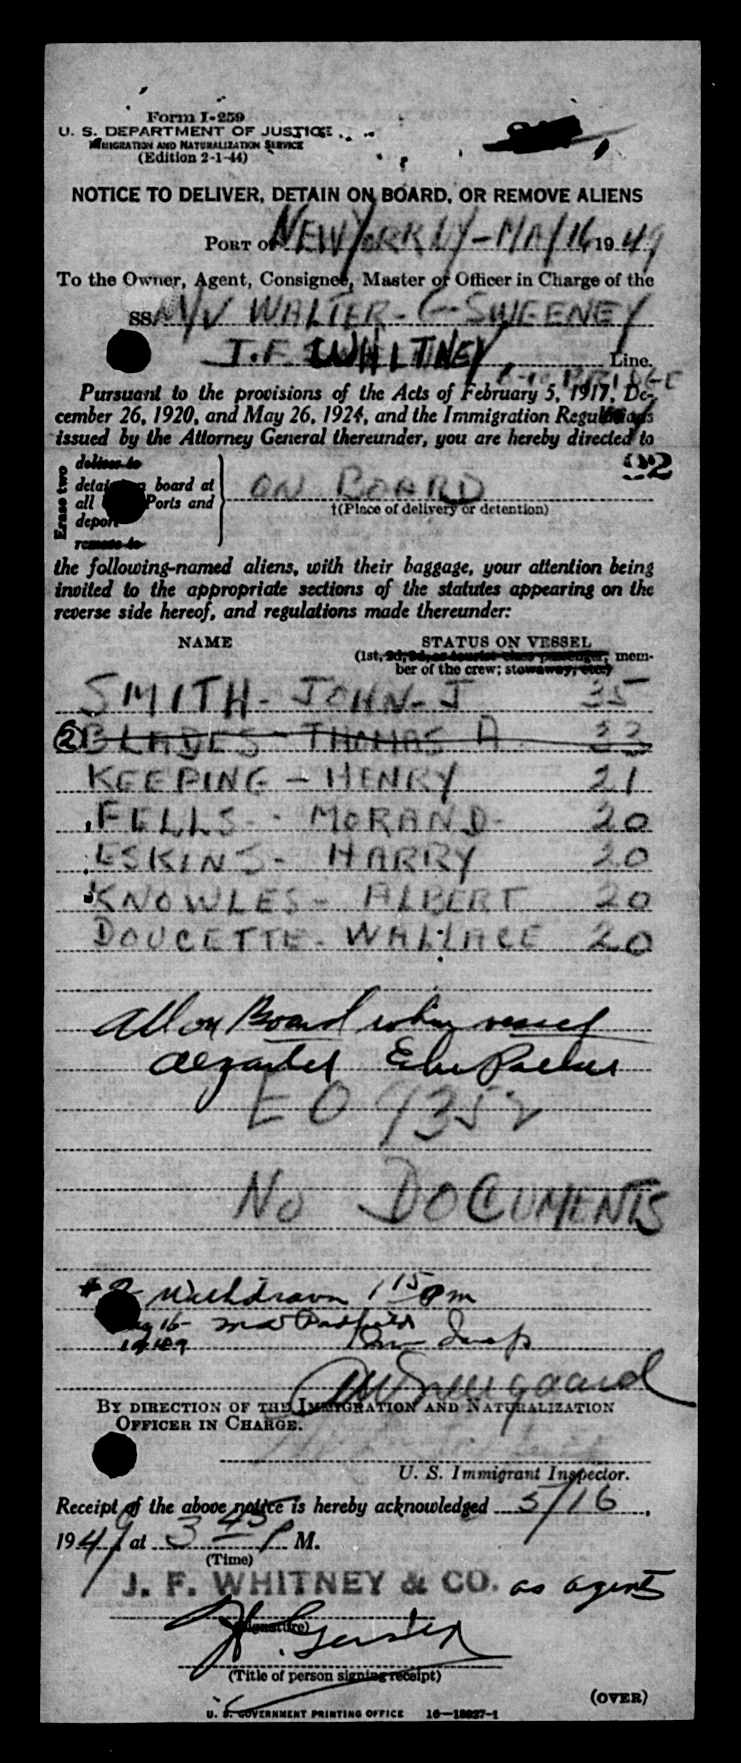 Form I-259
U. S. DEPARTMENT OF JUSTICE
IMMIGRATION AND NATURALIZATION SERVICE
(Edition 2-1-44)
NOTICE TO DELIVER, DETAIN ON BOARD, OR REMOVE ALIENS
PORT OF NEW YORK NY - MAY 16, 1949
To the Owner, Agent, Consignee, Master or Officer in Charge of the
SS M/V WALTER - G - SWEENEY
J. F. WHITNEY, Line.
Pursuant to the provisions of the Acts of February 5, 1917, De-
cember 26, 1920, and May 26, 1924, and the Immigration Regulations
issued by the Attorney General thereunder, you are hereby directed to
92
Erase two
deliver to
detain on board at
all Ports and
deport
remove to
ON BOARD
†(Place of delivery or detention)
the following-named aliens, with their baggage, your attention being
invited to the appropriate sections of the statutes appearing on the
reverse side hereof, and regulations made thereunder:
NAME STATUS ON VESSEL
(1st, 2d, 3d, or tourist class passenger, mem-
ber of the crew; stowaway, etc.)
SMITH - JOHN - J 35
② BLADES - THOMAS A 33
KEEPING - HENRY 21
FELLS - MORAND - 20
ESKINS - HARRY 20
KNOWLES - ALBERT 20
DOUCETTE - WALLACE 20
All on Board when vessel
departed
EO 9352
NO DOCUMENTS
# 2 Withdrawn 1 15 pm
BY DIRECTION OF THE IMMIGRATION AND NATURALIZATION
OFFICER IN CHARGE.
U. S. Immigrant Inspector.
Receipt of the above notice is hereby acknowledged 5/16,
1949 at 3 45 P M.
(Time)
J. F. WHITNEY & CO. as agents
(Signature)
(Title of person signing receipt)
(OVER)
U. S. GOVERNMENT PRINTING OFFICE 16—18027-1